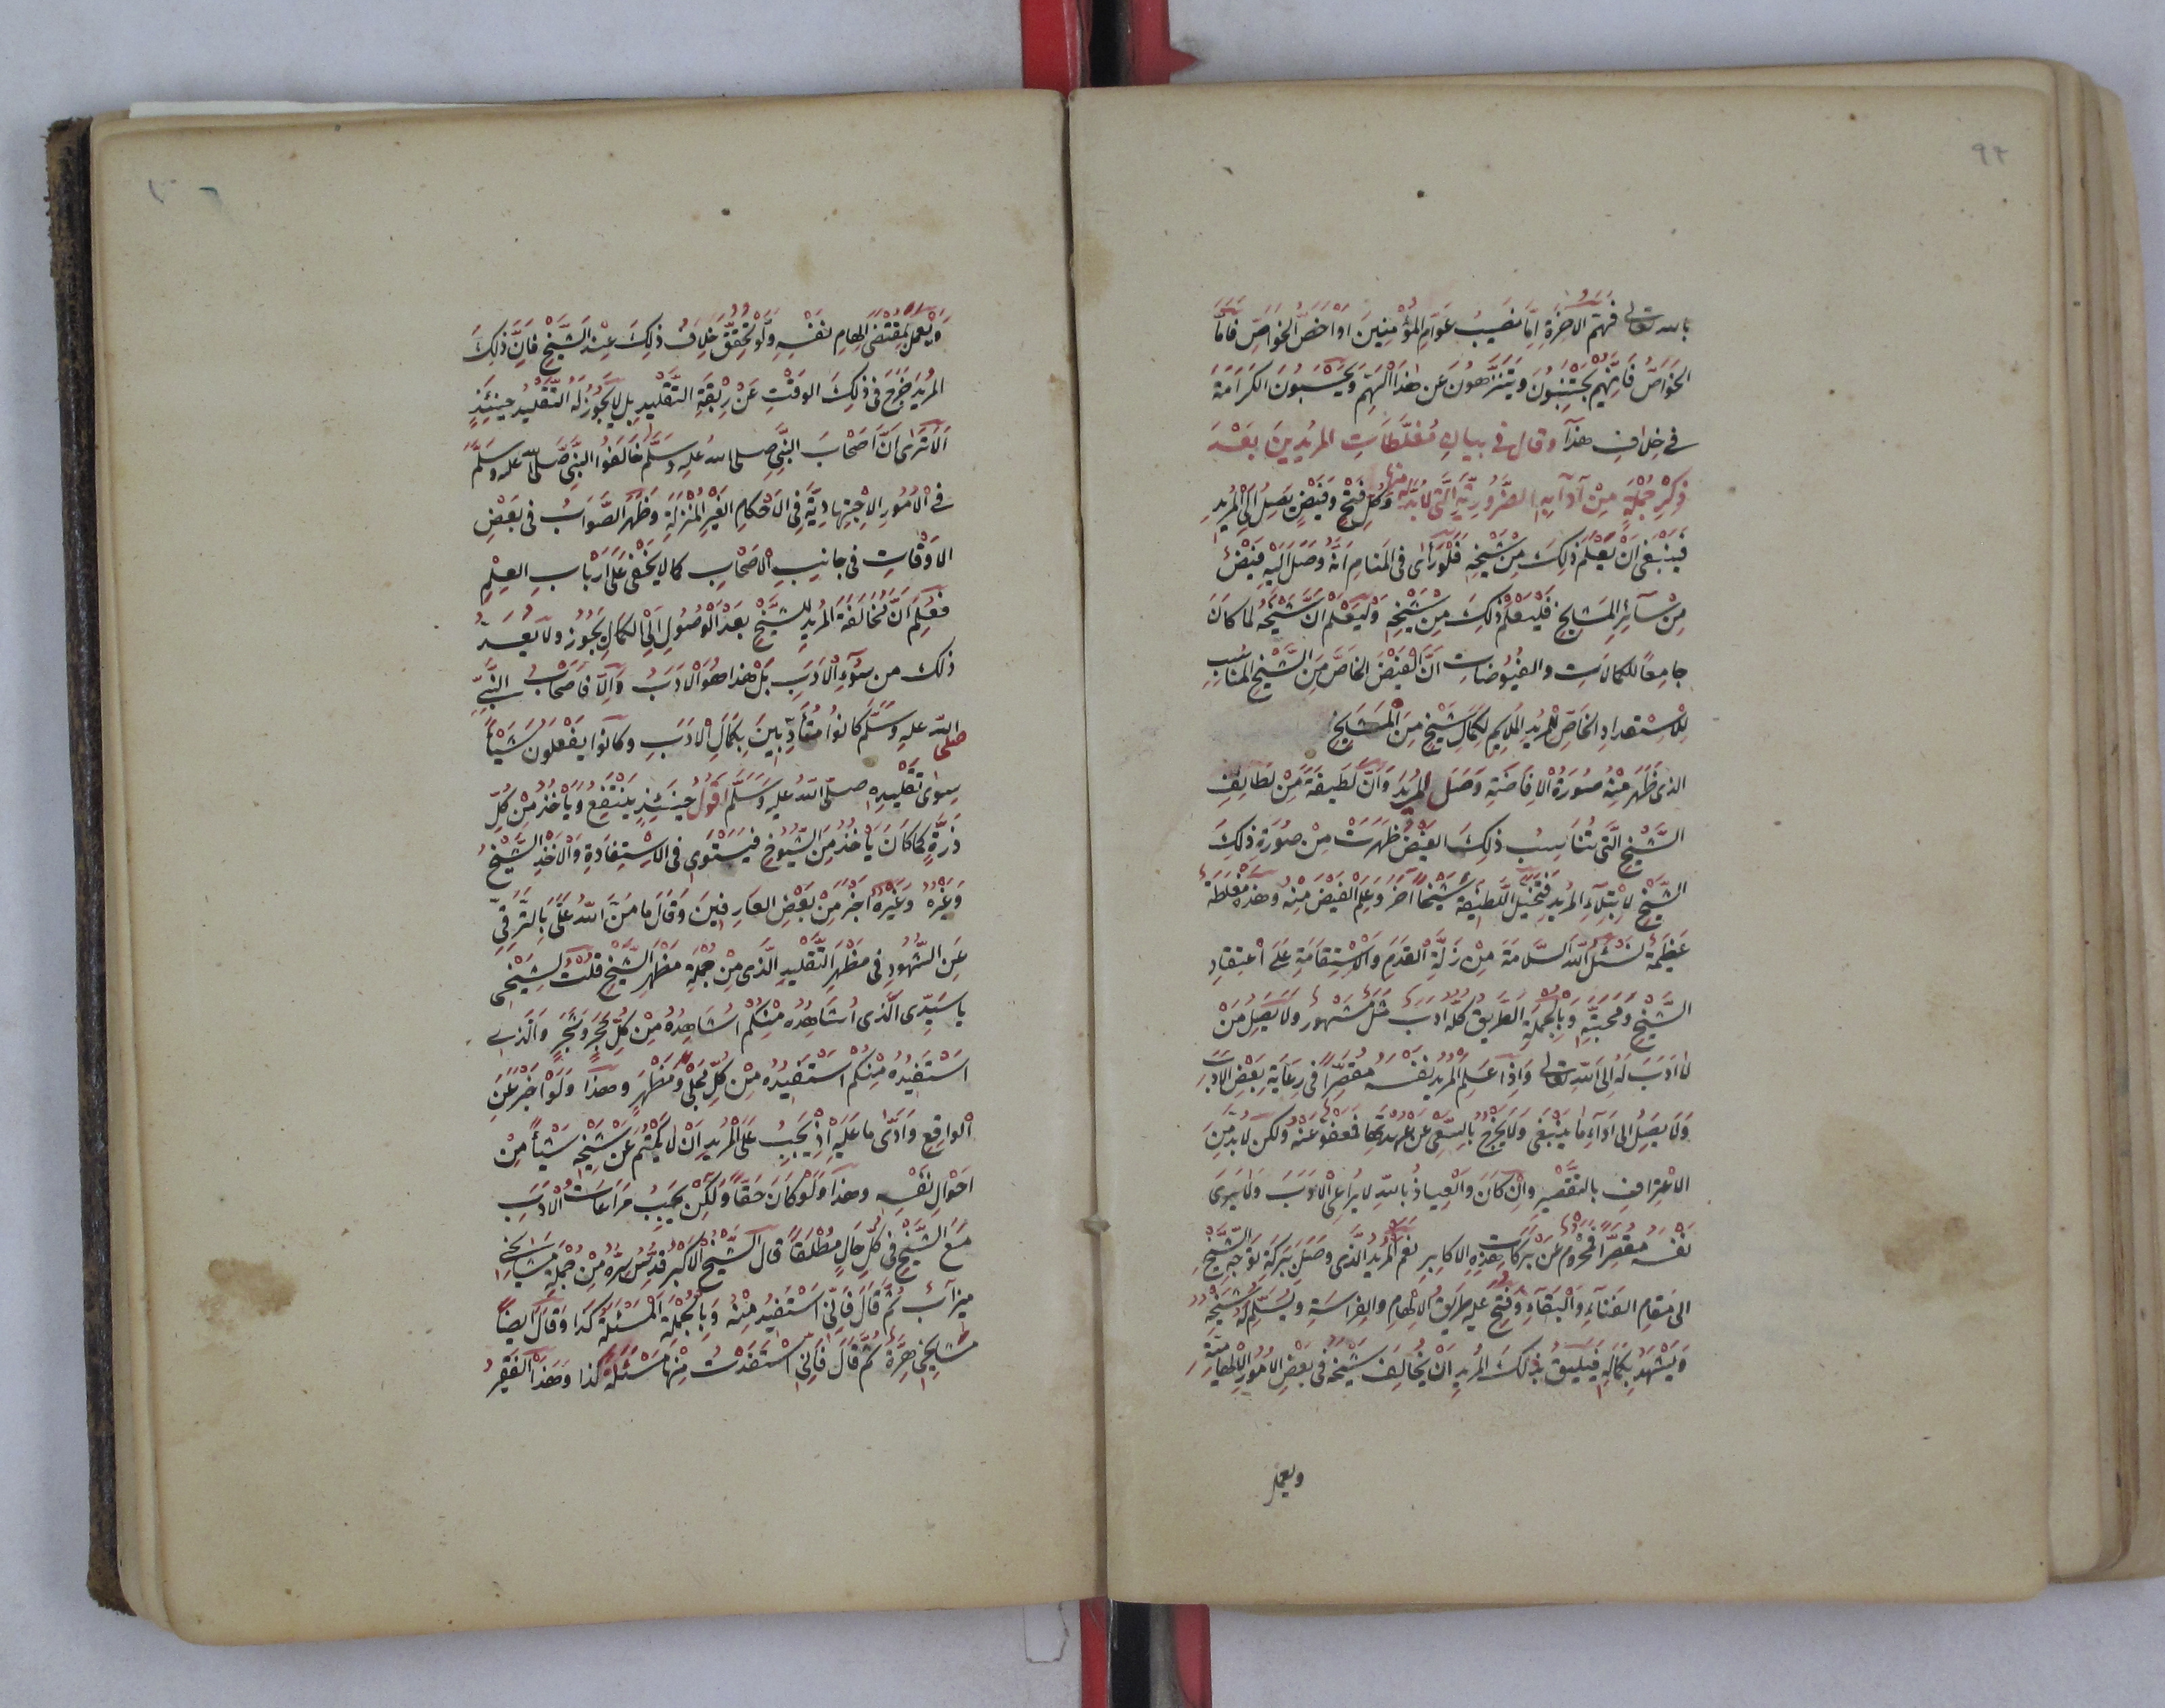 ٩٢
بالله تعالى فهم الآخرة اما نصيب عوام المؤمنين او اخص الخواص فاما
الخواص فانهم يجتنبون ويتنزهون عن هذا الهم ويحسبون الكرامة
في خلاف هذا وقال في بيان مغلطات المريدين بعد
ذكر جملة من آدابه الضرورية التي لابد منها وكل فتح وفيض يصل الى المريد
فينبغي ان يعلم ذلك من شيخه فلو رأى في المنام انه وصل اليه فيض
من سائر المشايخ فليعلم ذلك من شيخه وليعلم ان شيخه لما كان
جامعا للكمالات والفيوضات ان الفيض الخاص من الشيخ المناسب
للاستعداد الخاص للمريد الملايم لكمال شيخ من المشايخ
الذي ظهر منه صورة الافاضة وصل المريد وان لطيفة من لطائف
الشيخ التي تناسب ذلك الفيض ظهرت من صورة ذلك
الشيخ لابتلاء المريد فتخيل اللطيفة شيخا آخر وعلم الفيض منه وهذه مغلطة
عظيمة نسئل الله السلامة من زلة القدم والاستقامة على اعتقاد
الشيخ ومحبته وبالجملة الطريق كله ادب مثل مشهور ولا يصل من
لا ادب له الى الله تعالى واذا علم المريد نفسه مقصرا في رعاية بعض الادب
ولا يصل الى اداء ما ينبغي ولا يخرج بالسعي عن عهدتها فمعفو عنه ولكن لابد من
الاعتراف بالتقصير وان كان والعياذ بالله لا يراعي الادب ولا يرى
نفسه مقصرا فمحروم عن بركات هذه الاكابر نعم المريد الذي وصل ببركة توجه الشيخ
الى مقام الفناء والبقاء وفتح عليه طريق الالهام والفراسة ويسلم له شيخه
ويشهد بكماله فيليق بذلك المريد ان يخالف شيخه في بعض الامور الالهامية
ويعمل
ويعمل بمقتضى الهام نفسه ولو تحقق خلاف ذلك عند الشيخ فان ذلك
المريد خرج في ذلك الوقت عن ربقة التقليد بل لا يجوز له التقليد حينئذ
الا ترى ان اصحاب النبي صلى الله عليه وسلم خالفوا النبي صلى الله عليه وسلم
في الامور الاجتهادية في الاحكام الغير المنزلة وظهر الصواب في بعض
الاوقات في جانب الاصحاب كما لا يخفى على ارباب العلم
فعلم ان مخالفة المريد للشيخ بعد الوصول الى الكمال يجوز ولا يعد
ذلك من سوء الادب بل هذا هو الادب والا فاصحاب النبي
صلى الله عليه وسلم كانوا متأدبين بكمال الادب وكانوا يفعلون شيئا
سوى تقليده صلى الله عليه وسلم اقول حينئذ ينتفع ويأخذ من كل
ذرة كما كان يأخذ من الشيوخ فيستوى في الاستفادة والاخذ الشيخ
وغيره وغيره اخبر من بعض العارفين وقال ما من الله على بالترقي
عن الشهود في مظهر التقليد الذي من جملة مظهر الشيخ قلت لشيخي
يا سيدي الذي اشاهده منكم اشاهده من كل حجر وشجر والذي
استفيده منكم استفيده من كل مجلى ومظهر وهذا ولو اخبر عن
الواقع وادى ما عليه اذ يجب على المريد ان لا يكتم عن شيخه شيئا من
احوال نفسه وهذا ولو كان حقا ولكن يجب مراعات الادب
مع الشيخ في كل حال مطلقا قال الشيخ الاكبر قدس سره من جملة مشايخي
ميزاب ثم قال فاني استفيد منه وبالجملة المسئلة كذا وقال ايضا
مشايخي هرة ثم قال فاني استفدت منها مسئلة كذا وهذا الفقير